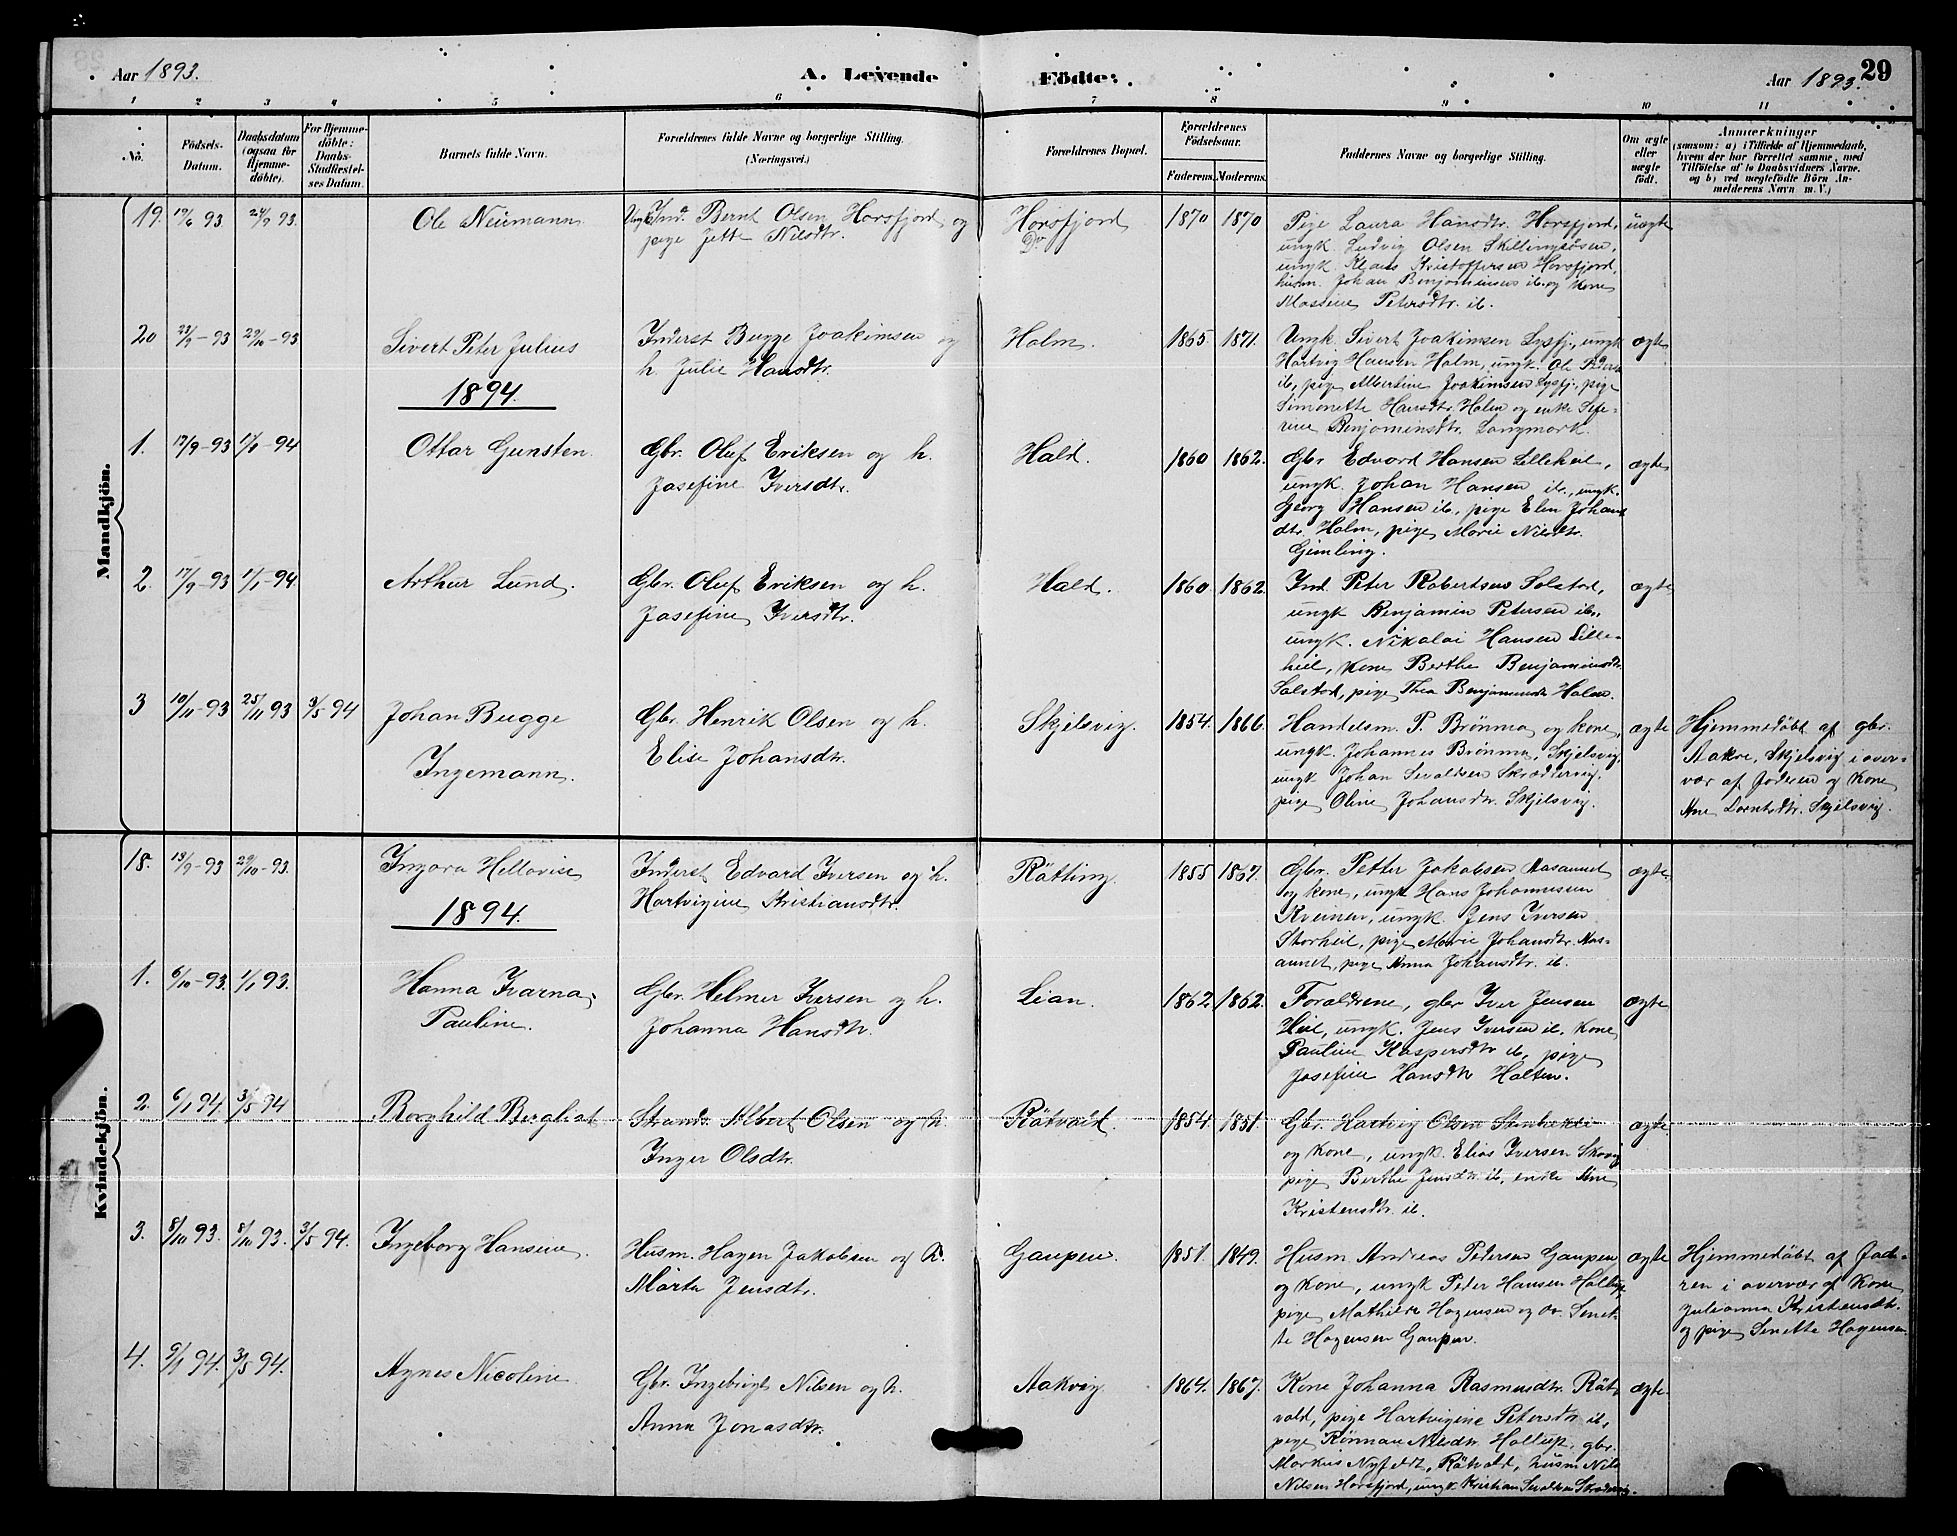 Aar 1893. A. Levende Födte. Aar 1893. 29
1 2 3 4 5 6 7 8 9 10 11
No. Födsels-Datum. Daabsdatum (ogsaa for Hjemme-döbte). For Hjemme-döbte: Daabs-Stadfæstel-ses Datum. Barnets fulde Navn. Forældrenes fulde Navne og borgerlige Stilling. (Næringsvei.) Forældrenes Bopæl. Forældrenes Födselsaar. Faderens. Moderens. Faddernes Navne og borgerlige Stilling. Om ægte eller uægte födt. Anmærkninger (saasom: a) i Tilfælde af Hjemmedaab, hvem der har forrettet samme, med Tilföielse af to Daabsvidners Navne. og b) ved uægtefödte Börn An-melderens Navn m. V.)
Mandkjön.
19. 19/6 93 24/9 93. Ole Neumann Ungk. Ind. Bernt Olsen Horsfjord og Horsfjord 1870 1870 Pige Laura Hansdtr. Horsfjord, uægte
pige Jette Nilsdtr. Do ungk. Ludvig Olsen
ungk. Klaus Kristoffersen Horsfjord,
husm. Johan Benjaminsen ib. og kone
Massine Petersdtr. ib.
20 22/9 - 93 29/10 - 93 Sivert Peter Julius Inderst Bugge Joakimsen og Holm. 1865. 1871. Ungk. Sivert Joakimsen Lysfj., ungk. ægte
h. Julie Hansdtr. Hartvig Hansen Holm, ungk. Ole
ib, pige Albertine Joakimsen Lysfj., pige
1894. Simonette Hansdtr. Holm og enke Sefe-
rine Benjaminsdtr. Langmork.
1. 17/9 - 93 1/1 - 94 Ottar Gunsten. Gbr. Oluf Eriksen og h. Hald. 1860 1862. Gbr. Edvard Hansen Lilleheil, ægte
Josefine Iversdtr. ungk. Johan Hansen ib., ungk.
Georg Hansen ib, pige Elen Johans
dtr. Holm, pige Marie Nilsdtr.
Gimling.
2. 17/9 - 93 1/1 - 94 Arthur Lund. Gbr. Oluf Eriksen og h. Hald. 1860 1862. Ind. Peter Robertsen Solstad, ægte
Josefine Iversdtr. ungk Benjamin Petersen ib.,
ungk. Nikolai Hansen Lille-
heil, kone Berthe Benjaminsdtr.
Solstad, pige Thea Benjaminsdtr Holm.
3 10/11 - 93 25/11 93 3/5 94 Johan Bugge Gbr. Henrik Olsen og h. Skjelsvig. 1854. 1866. Handelsm. P. Brønmo og kone, ægte Hjemmedöbt af gbr.
Ingemann. Elise Johansdtr. ungk. Johannes Brönmo, Skjelsvig, Aakre, Skjelsvig i over-
ungk Johan Sivaldsen vær af faderen og kone
pige Oline Johansdtr. Skjelsvig. Ane Lorntsdtr. Skjelsvig.
Kvindekjön.
18. 13/9 - 93 29/10 - 93. Ingora Hellovise Inderst Edvard Iversen og h. Rötting. 1855 1867. Gbr. Petter Jakobsen ægte.
Hartvigine Kristiansdtr. og kone, ungk Hans Johannesen
1894. ungk. Jens Iversen
Storheil, pige Marie Johansdtr.
pige Anna Johansdtr. ib.
1. 6/10 - 93. 1/1 93. Hanna Ivarna Gbr. Helmer Iversen og h. Lian. 1862. 1862. Forældrene, gbr Iver Jensen ægte
Pauline. Johanna Hansdtr. Heil, ungk. Jens Iversen ib. kone
Pauline Kaspersdtr ib, pige
Josefine Hansdtr Holten.
2. 6/1 94. 3/5 94 Borghild Bergliot Strands. Albert Olsen og h. Rötvold. 1854. 1851. Gbr. Hartvig Olsen ægte
Inger Olsdtr. og kone, ungk. Elias Iversen
pige Berthe Jensdtr ib, enke Ane
Kristensdtr. ib.
3. 8/10 93. 8/10 93. 3/5 94. Ingeborg Hansine. Husm. Hagen Jakobsen og h. Gaupen. 1851. 1849. Husm Andreas Pedersen Gaupen ægte Hjemmedöbt af fade-
Marta Jensdtr. og kone, ungk Peter Hansen ren i overvær af kone
pige Mathilde Hagensen og do. Senet- Julianna Kristensdtr.
te Hagensen Gaupen. og pige Senette Hagensen.
4. 9/1 94. 3/5 94. Agnes Nicoline. Gbr. Ingebrigt Nilsen og h. Aakvig 1864. 1867. Kone Johanna Rasmusdtr. Röt ægte.
Anna Jonasdtr. vold, pige Hartvigine Petersdtr ib,
pige Nilsdtr. gbr.
Markus Rötvold, husm Nils
Nilsen Horsfjord, ungk Kristian